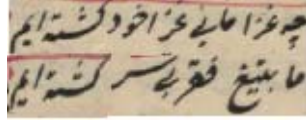 چه عزا مانی عزا خود کشته ایم
ما بتیغ فقر بی سر کشته ایم